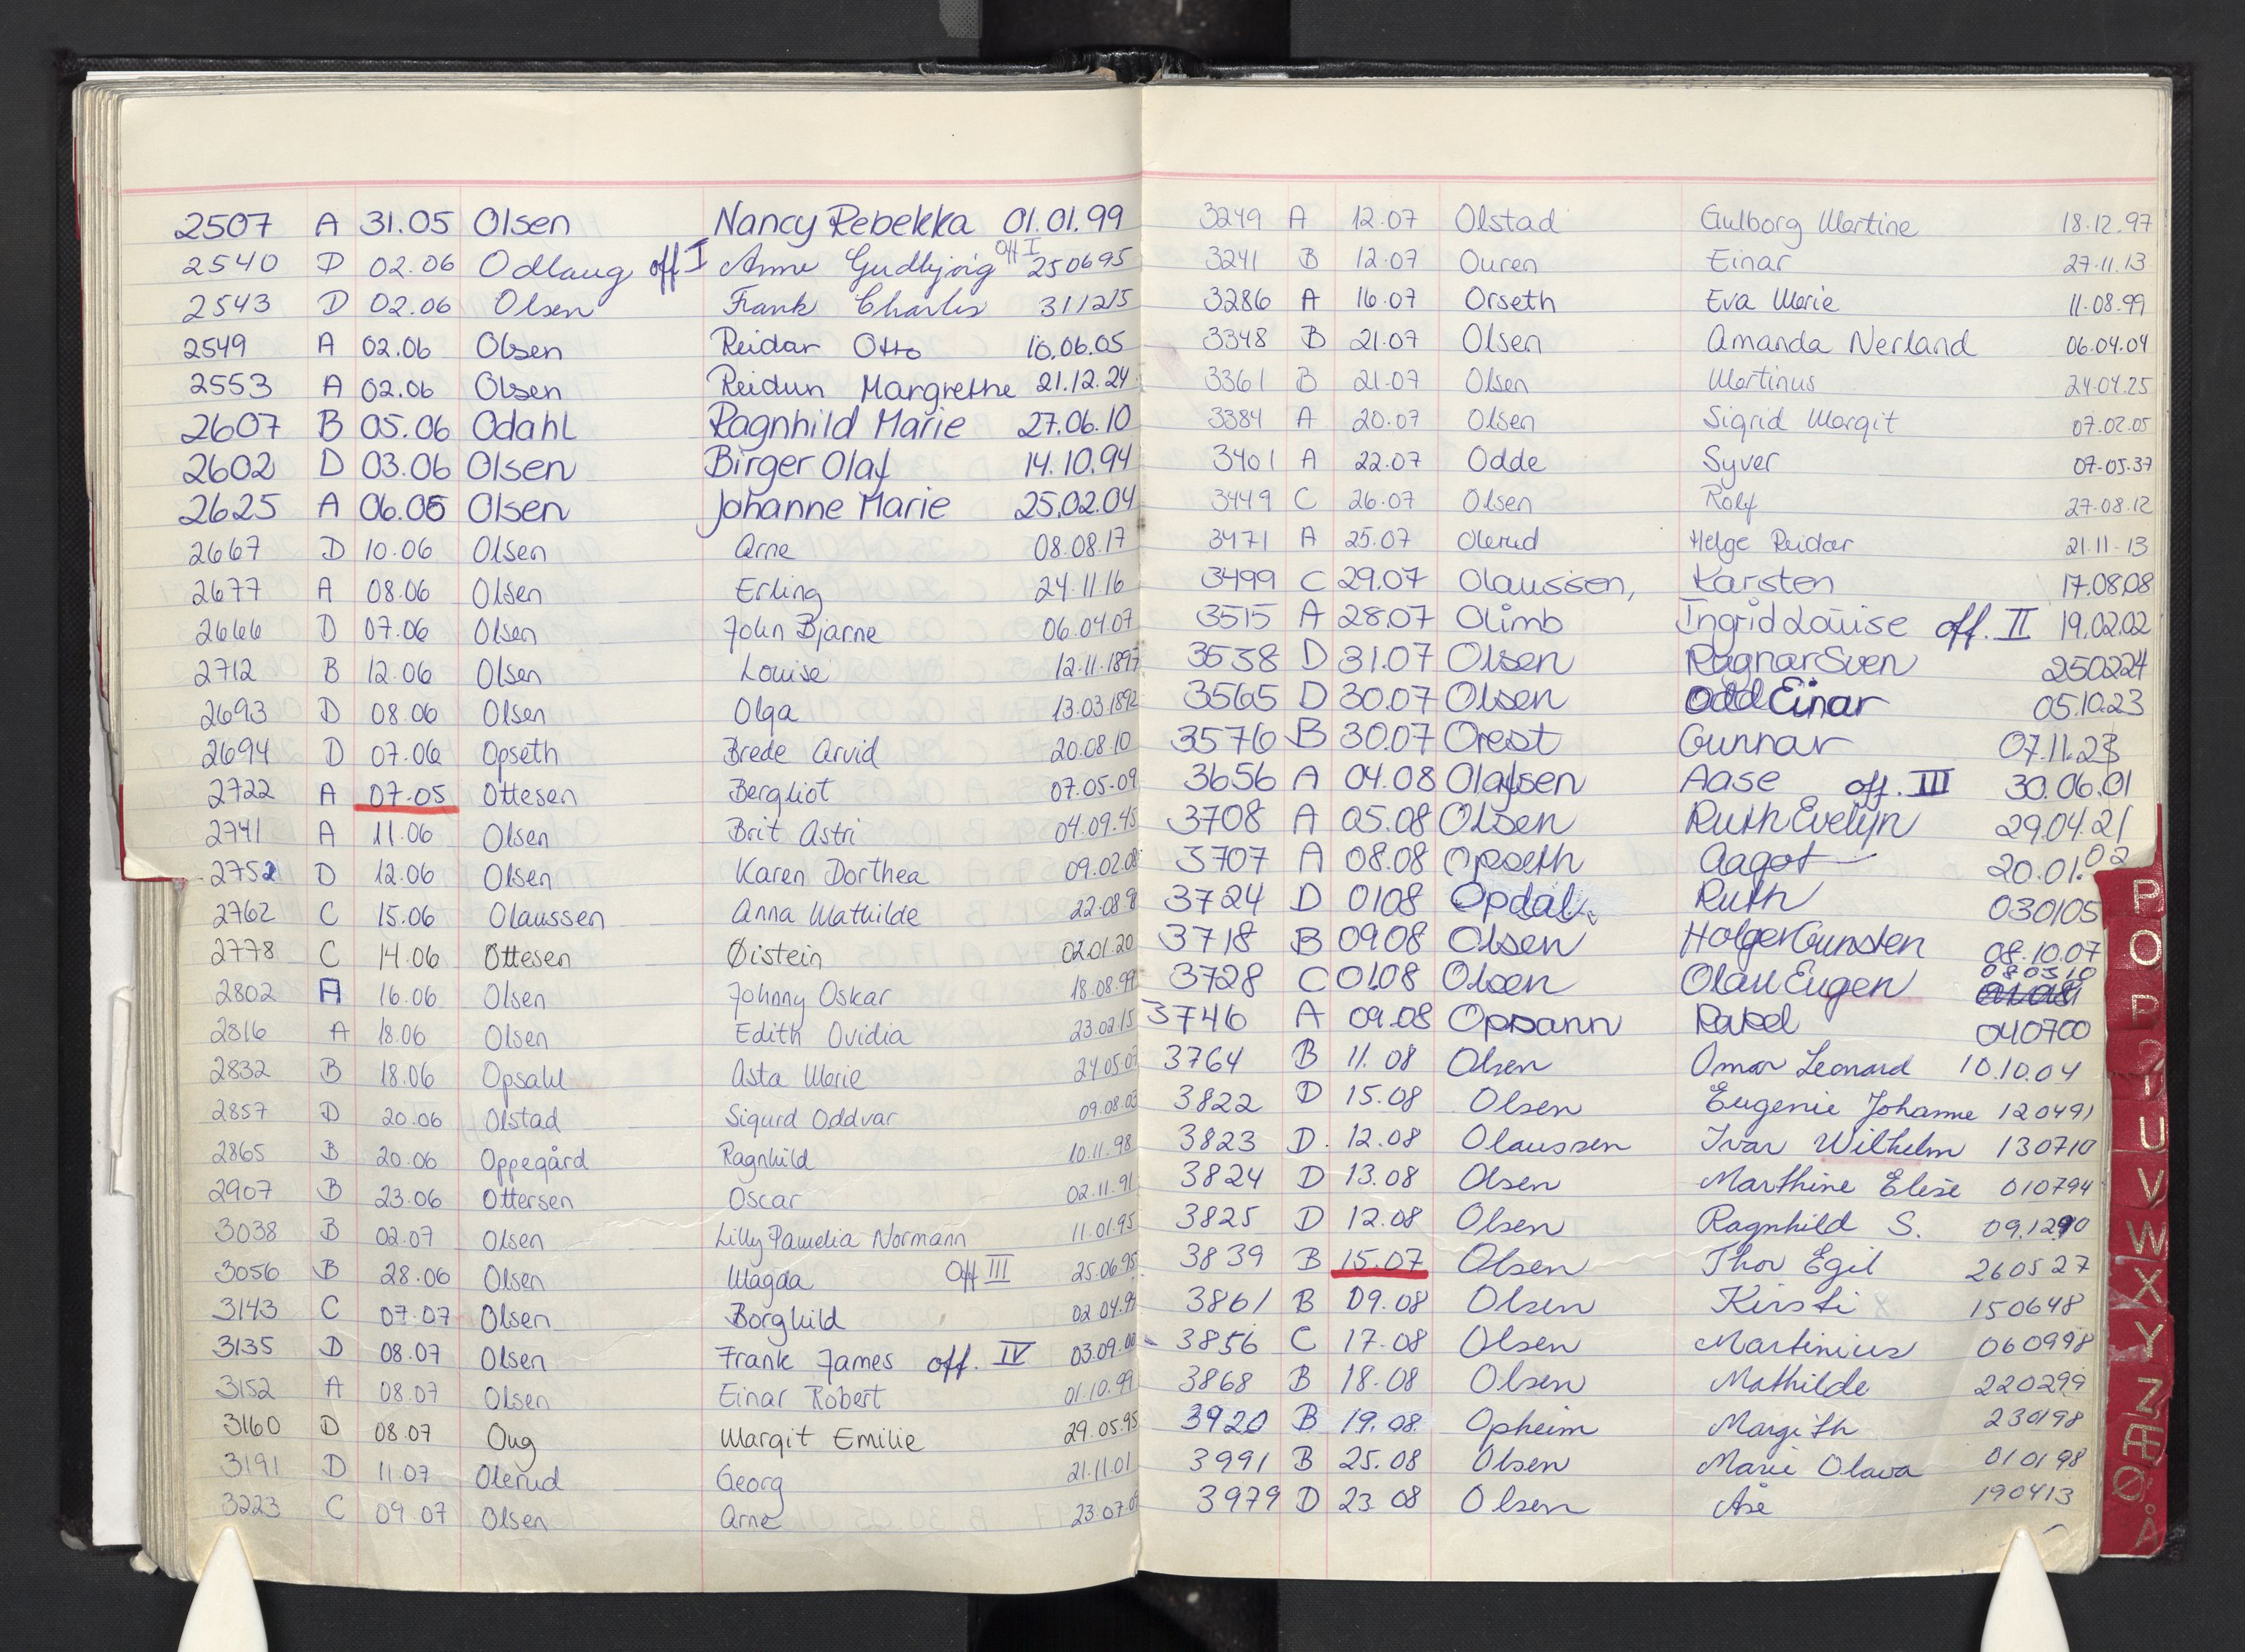 2507 A 31.05 Olsen Nancy Rebekka 01.01.99
2540 D 02.06 Odlaug off I Anne Gudbjørg off I 250695
2543 D 02.06 Olsen Frank Charles 311215
2549 A 02.06 Olsen Reidar Otto 10.06.05
2553 A 02.06 Olsen Reidun Margrethe 21.12.24
2607 B 05.06 Odahl Ragnhild Marie 27.06.10
2602 D 03.06 Olsen Birger Olaf 14.10.94
2625 A 06.06 Olsen Johanne Marie 25.02.04
2667 D 10.06 Olsen Arne 08.08.17
2677 A 08.06 Olsen Erling 24.11.16
2666 D 07.06 Olsen John Bjarne 06.04.07
2712 B 12.06 Olsen Louise 12.11.1897
2693 D 08.06 Olsen Olga 13.03.1892
2694 D 07.06 Opseth Brede Arvid 20.08.10
2722 A 07.05 Ottesen Bergliot 07.05.09
2741 A 11.06 Olsen Brit Astri 04.09.45
2752 D 12.06 Olsen Karen Dorthea 09.02.08
2762 C 15.06 Olaussen Anna Mathilde 22.08.8
2778 C 14.06 Ottesen Øistein 02.01.20
2802 A 16.06 Olsen Johnny Oskar 18.08.99
2816 A 18.06 Olsen Edith Ovidia 23.02.15
2832 B 18.06 Opsahl Asta Marie 24.05.07
2857 D 20.06 Olstad Sigurd Oddvar 09.08.03
2865 B 20.06 Oppegård Ragnhild 10.11.98
2907 B 23.06 Ottersen Oscar 02.11.91
3038 B 02.07 Olsen Lilly Pamelia Normann 11.01.95
3056 B 28.06 Olsen Magda Off III 25.06.95
3143 C 07.07 Olsen Borghild 02.04.9
3135 D 08.07 Olsen Frank James off. IV 03.09.00
3152 A 08.07 Olsen Einar Robert 01.10.99
3160 D 08.07 Oug Margit Emilie 29.05.95
3191 D 11.07 Olerud Georg 21.11.01
3223 C 09.07 Olsen Arne 23.07.0
3249 A 12.07 Olstad Gulborg Martine 18.12.97
3241 B 12.07 Ouren Einar 27.11.13
3286 A 16.07 Orseth Eva Marie 11.08.99
3348 B 21.07 Olsen Amanda Nerland 06.04.04
3361 B 21.07 Olsen Martinus 24.04.25
3384 A 20.07 Olsen Sigrid Margit 07.02.05
3401 A 22.07 Odde Syver 07.05.37
3449 C 26.07 Olsen Rolf 27.08.12
3471 A 25.07 Olerud Helge Reidar 21.11.13
3499 C 29.07 Olaussen, Karsten 17.08.08
3515 A 28.07 Olimb Ingrid Louise off. II 19.02.02
3538 D 31.07 Olsen Ragnar Sven 250224
3565 D 30.07 Olsen Odd Einar 05.10.23
3576 B 30.07 Orest Gunnar 07.11.23
3656 A 04.08 Olafsen Aase off. III 30.06.01
3708 A 05.08 Olsen Ruth Evelyn 29.04.21
3707 A 08.08 Opseth Aagot 20.01.02
3724 D 0108 Opdal Ruth 030105
3718 B 0908 Olsen Holger Gunsten 08.10.07
3728 C 01.08 Olsen Olau Eugen 080310
3746 A 09.08 Opsann Rakel 040700
3764 B 11.08 Olsen Omar Leonard 10.10.04
3822 D 15.08 Olsen Eugenie Johanne 120491
3823 D. 12.08 Olaussen Ivar Wilhelm 130710
3824 D 13.08 Olsen Marthine Elise 010794
3825 D 12.08 Olsen Ragnhild S. 09.1290
3839 B 15.07 Olsen Thor Egil 260527
3861 B 09.08 Olsen Kirsti 150648
3856 C 17.08 Olsen Martinius 060998
3868 B 18.08 Olsen Mathilde 220299
3920 B 19.08. Opheim Margith 230198
3991 B 25.08 Olsen Marie Olava 010198
3979 D 23 08 Olsen Åse 190413
P
O
U
V
W
X
Y
Z
Æ
Ø
Å